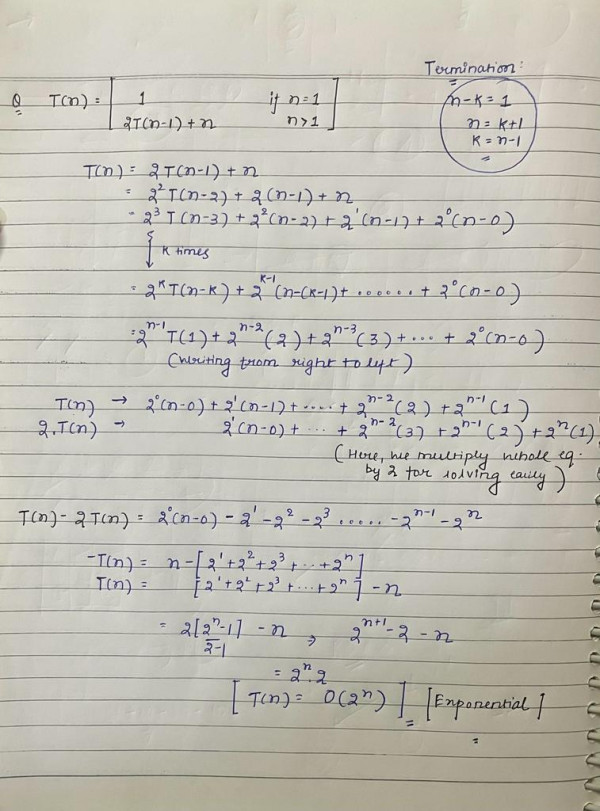 Termination:
n-k = 1
n = k+1
k = n-1
Q T(n) = [ 1 if n=1
2T(n-1)+n n>1 ]
T(n) = 2T(n-1)+n
= 2²T(n-2) + 2(n-1) + n
= 2³T(n-3) + 2²(n-2) + 2¹(n-1) + 2⁰(n-0)
↓ k times
= 2ᵏT(n-k) + 2ᵏ⁻¹(n-(k-1) + ...... + 2⁰(n-0)
= 2ⁿ⁻¹T(1) + 2ⁿ⁻²(2) + 2ⁿ⁻³(3) + ... + 2⁰(n-0)
(Writing from right to left)
T(n) → 2⁰(n-0) + 2¹(n-1) + .... + 2ⁿ⁻²(2) + 2ⁿ⁻¹(1)
2.T(n) → 2¹(n-0) + ... + 2ⁿ⁻²(3) + 2ⁿ⁻¹(2) + 2ⁿ(1)
(Here, we multiply whole eq.
by 2 for solving easily)
T(n) - 2T(n) = 2⁰(n-0) - 2¹ - 2² - 2³ ..... - 2ⁿ⁻¹ - 2ⁿ
-T(n) = n - [2¹+2²+2³+...+2ⁿ]
T(n) = [2¹+2²+2³+...+2ⁿ] - n
= 2[2ⁿ-1]/2-1 - n ⇒ 2ⁿ⁺¹ - 2 - n
= 2ⁿ.2
[T(n) = O(2ⁿ)] = [Exponential]